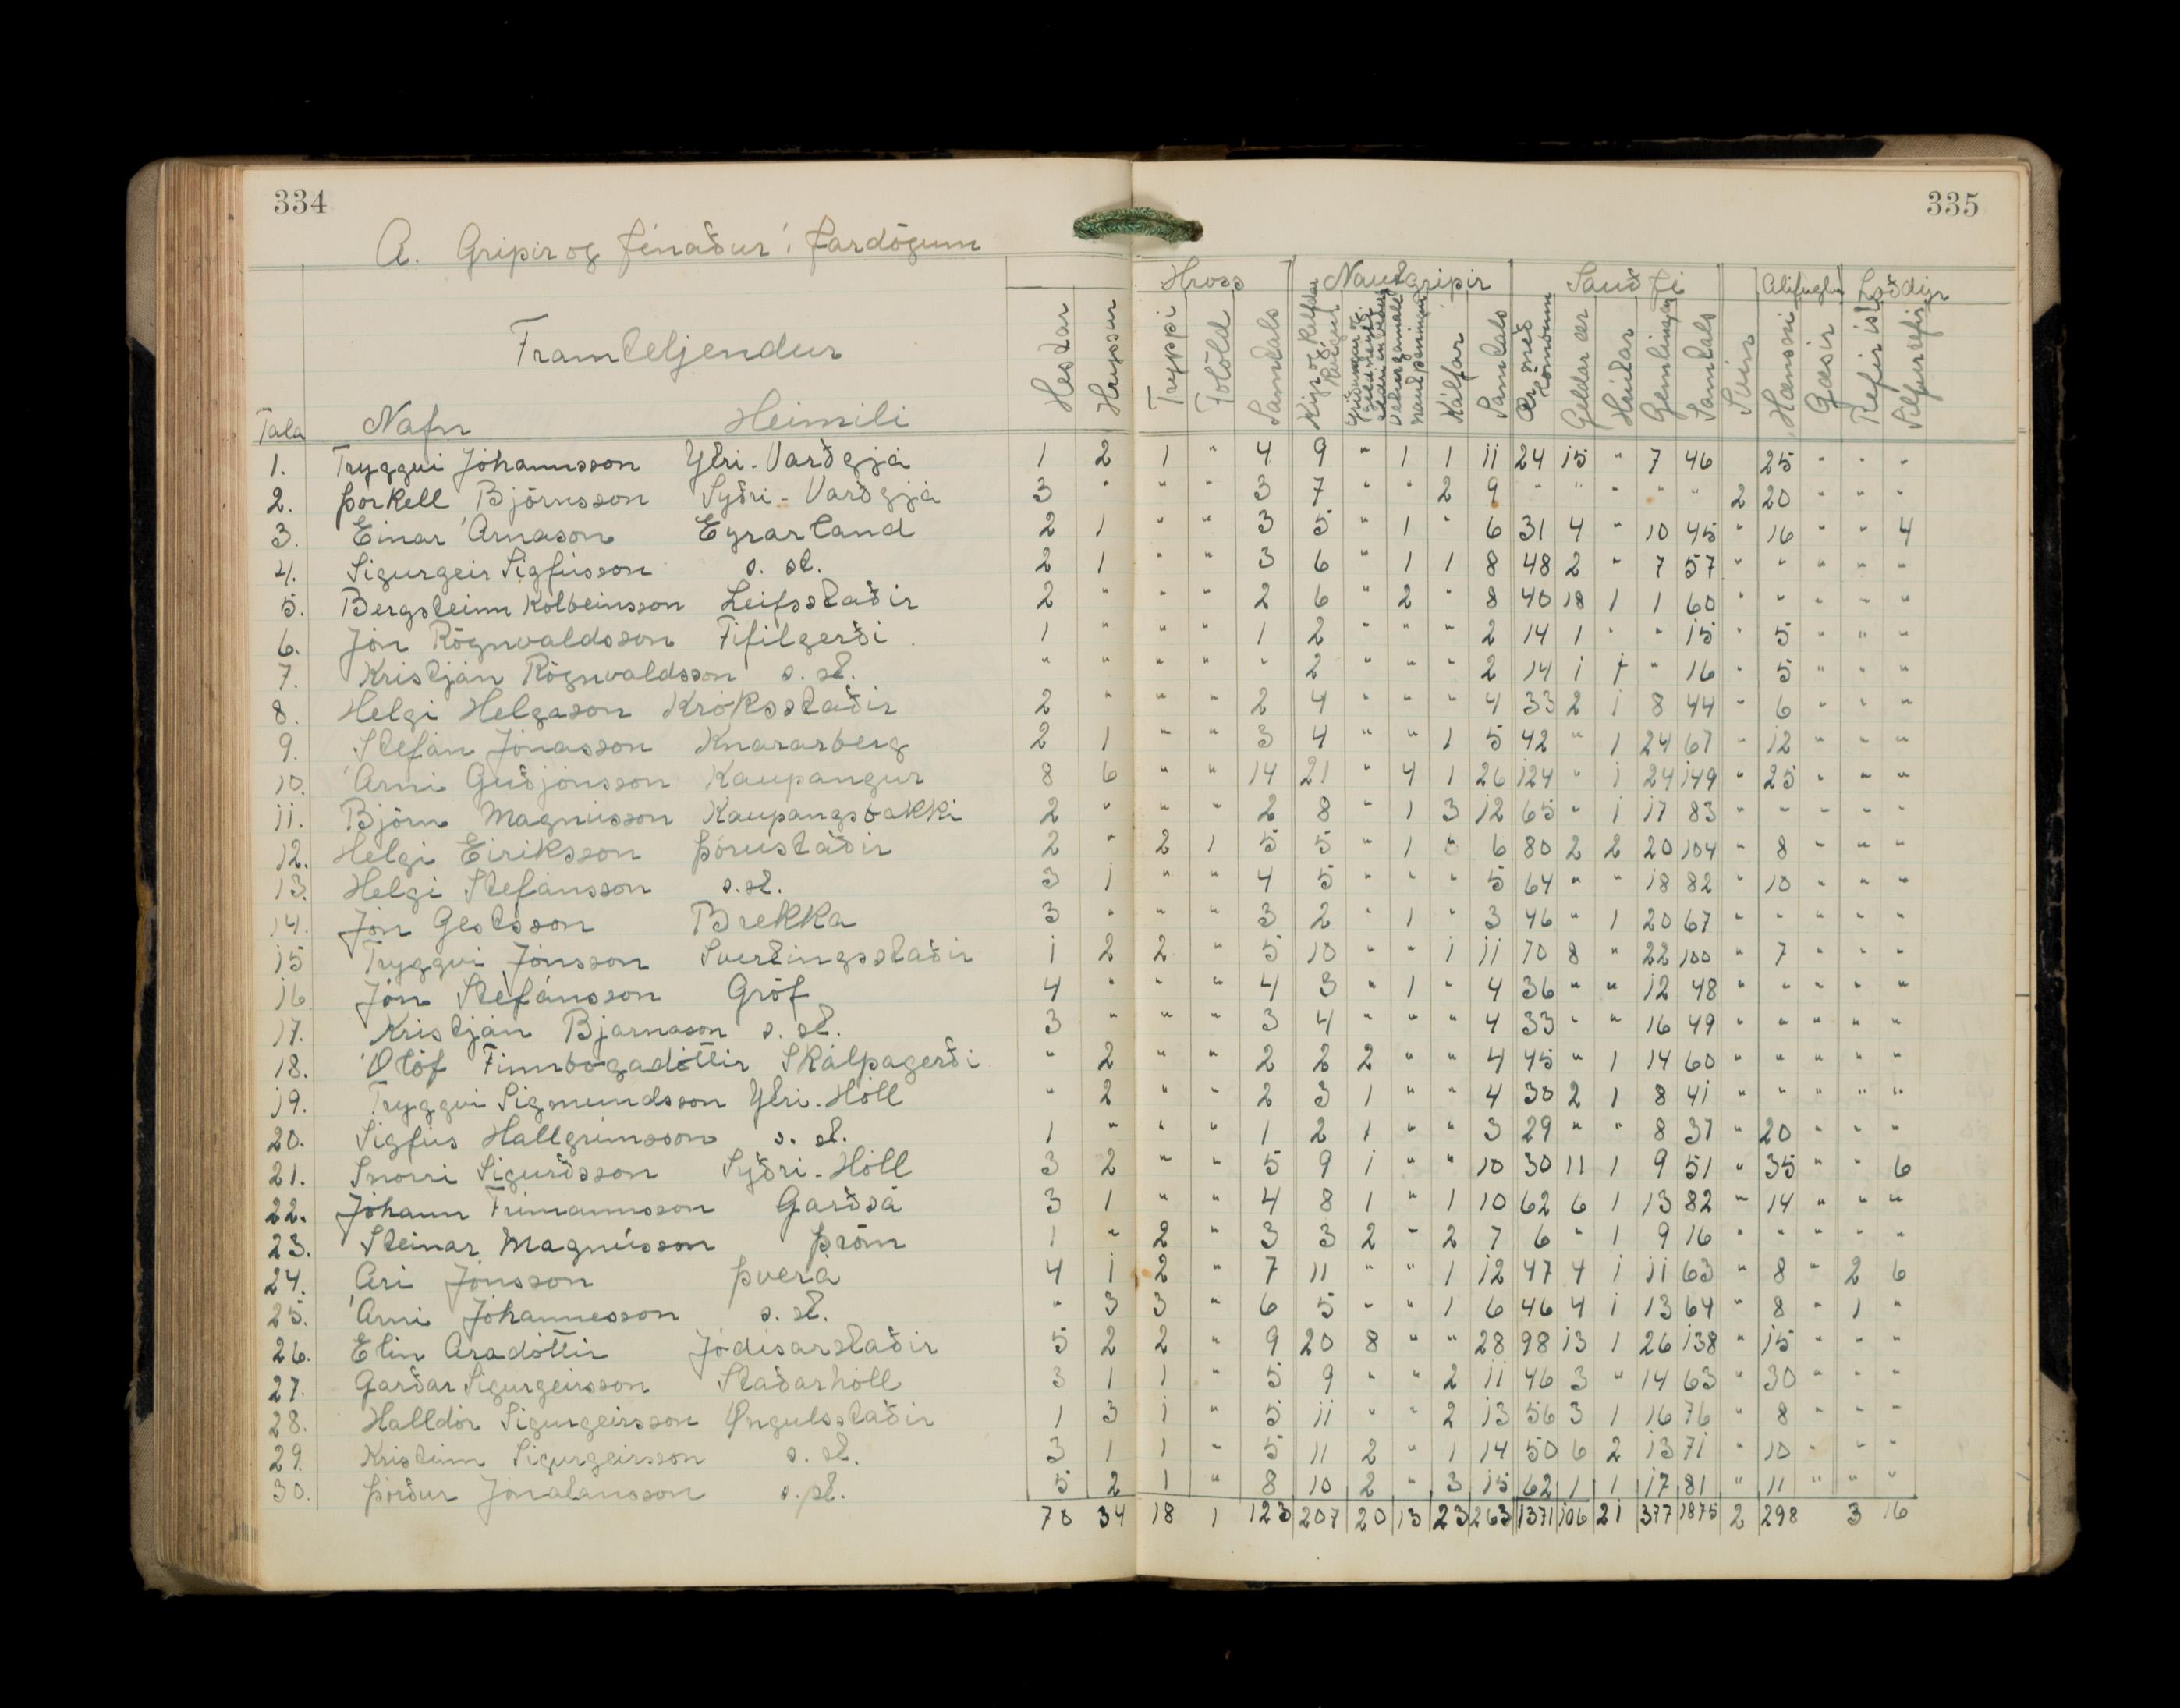 334
335
A. Gripir og fénaður í fardögum
Hross Nautgripir Sauðfé Alifuglar Loðdýr
Framteljendur
Tala Nafn Heimili Hestar Hryssur Tryppi Folöld Samtals Kýr og kelfdar kvígur Kálfar Samtals Ær með lömbum Geldar ær Hrútar Gemlingar Samtals Svín Hænsni Gæsir Refir ísl. Silfurrefir
1. Tryggvi Jóhannsson Ytri-Varðgjá 1 2 1 " 4 9 " 1 1 11 24 15 " 7 46 25 " " "
2. Þorkell Björnsson Syðri-Varðgjá 3 " " " 3 7 " " 2 9 " " " " " 2 20 " " "
3. Einar Árnason Eyrarland 2 1 " " 3 5 " 1 " 6 31 4 " 10 45 " 16 " " 4
4. Sigurgeir Sigfússon s. st. 2 1 " " 3 6 " 1 1 8 48 2 " 7 57 " " " " "
5. Bergsteinn Kolbeinsson Leifsstaðir 2 " " " 2 6 " 2 " 8 40 18 1 1 60 " " " " "
6. Jón Rögnvaldsson Fífilgerði 1 " " " 1 2 " " " 2 14 1 " " 15 " 5 " " "
7. Kristján Rögnvaldsson s. st. " " " " " 2 " " " 2 14 1 1 " 16 " 5 " " "
8. Helgi Helgason Króksstaðir 2 " " " 2 4 " " " 4 33 2 1 8 44 " 6 " " "
9. Stefán Jónasson Knararberg 2 1 " " 3 4 " " 1 5 42 " 1 24 67 " 12 " " "
10. Árni Guðjónsson Kaupangur 8 6 " " 14 21 " 4 1 26 124 " 1 24 149 " 25 " " "
11. Björn Magnússon Kaupangsbakki 2 " " " 2 8 " 1 3 12 65 " 1 17 83 " " " " "
12. Helgi Eiríksson Þórustaðir 2 " 2 1 5 5 " 1 " 6 80 2 2 20 104 " 8 " " "
13. Helgi Stefánsson s. st. 3 1 " " 4 5 " " " 5 64 " " 18 82 " 10 " " "
14. Jón Gestsson Brekka 3 " " " 3 2 " 1 " 3 46 " 1 20 67 " " " " "
15 Tryggvi Jónsson Svertingsstaðir 1 2 2 " 5 10 " " 1 11 70 8 " 22 100 " 7 " " "
16 Jón Stefánsson Gröf 4 " " " 4 3 " 1 " 4 36 " " 12 48 " " " " "
17. Kristján Bjarnason s. st. 3 " " " 3 4 " " " 4 33 " " 16 49 " " " " "
18. Ólöf Finnbogadóttir Skálpagerði " 2 " " 2 2 2 " " 4 45 " 1 14 60 " " " " "
19. Tryggvi Sigmundsson Ytri-Hóll " 2 " " 2 3 1 " " 4 30 2 1 8 41 " " " " "
20. Sigfús Hallgrímsson s. st. 1 " " " 1 2 1 " " 3 29 " " 8 37 " 20 " " "
21. Snorri Sigurðsson Syðri-Hóll 3 2 " " 5 9 1 " " 10 30 11 1 9 51 " 35 " " 6
22. Jóhann Frímannsson Garðsá 3 1 " " 4 8 1 " 1 10 62 6 1 13 82 " 14 " " "
23. Steinar Magnússon Þröm 1 " 2 " 3 3 2 " 2 7 6 " 1 9 16 " " " " "
24. Ari Jónsson Þverá 4 1 2 " 7 11 " " 1 12 47 4 1 11 63 " 8 " 2 6
25. Árni Jóhannesson s. st. " 3 3 " 6 5 " " 1 6 46 4 1 13 64 " 8 " 1 "
26. Elín Aradóttir Jódísarstaðir 5 2 2 " 9 20 8 " " 28 98 13 1 26 138 " 15 " " "
27. Garðar Sigurgeirsson Staðarhóll 3 1 1 " 5 9 " " 2 11 46 3 " 14 63 " 30 " " "
28. Halldór Sigurgeirsson Öngulsstaðir 1 3 1 " 5 11 " " 2 13 56 3 1 16 76 " 8 " " "
29. Kristinn Sigurgeirsson s. st. 3 1 1 " 5 11 2 " 1 14 50 6 2 13 71 " 10 " " "
30. Þórður Jónatansson s. st. 5 2 1 " 8 10 2 " 3 15 62 1 1 17 81 " 11 " " "
70 34 18 1 123 207 20 13 23 263 1371 106 21 377 1875 2 298 3 16